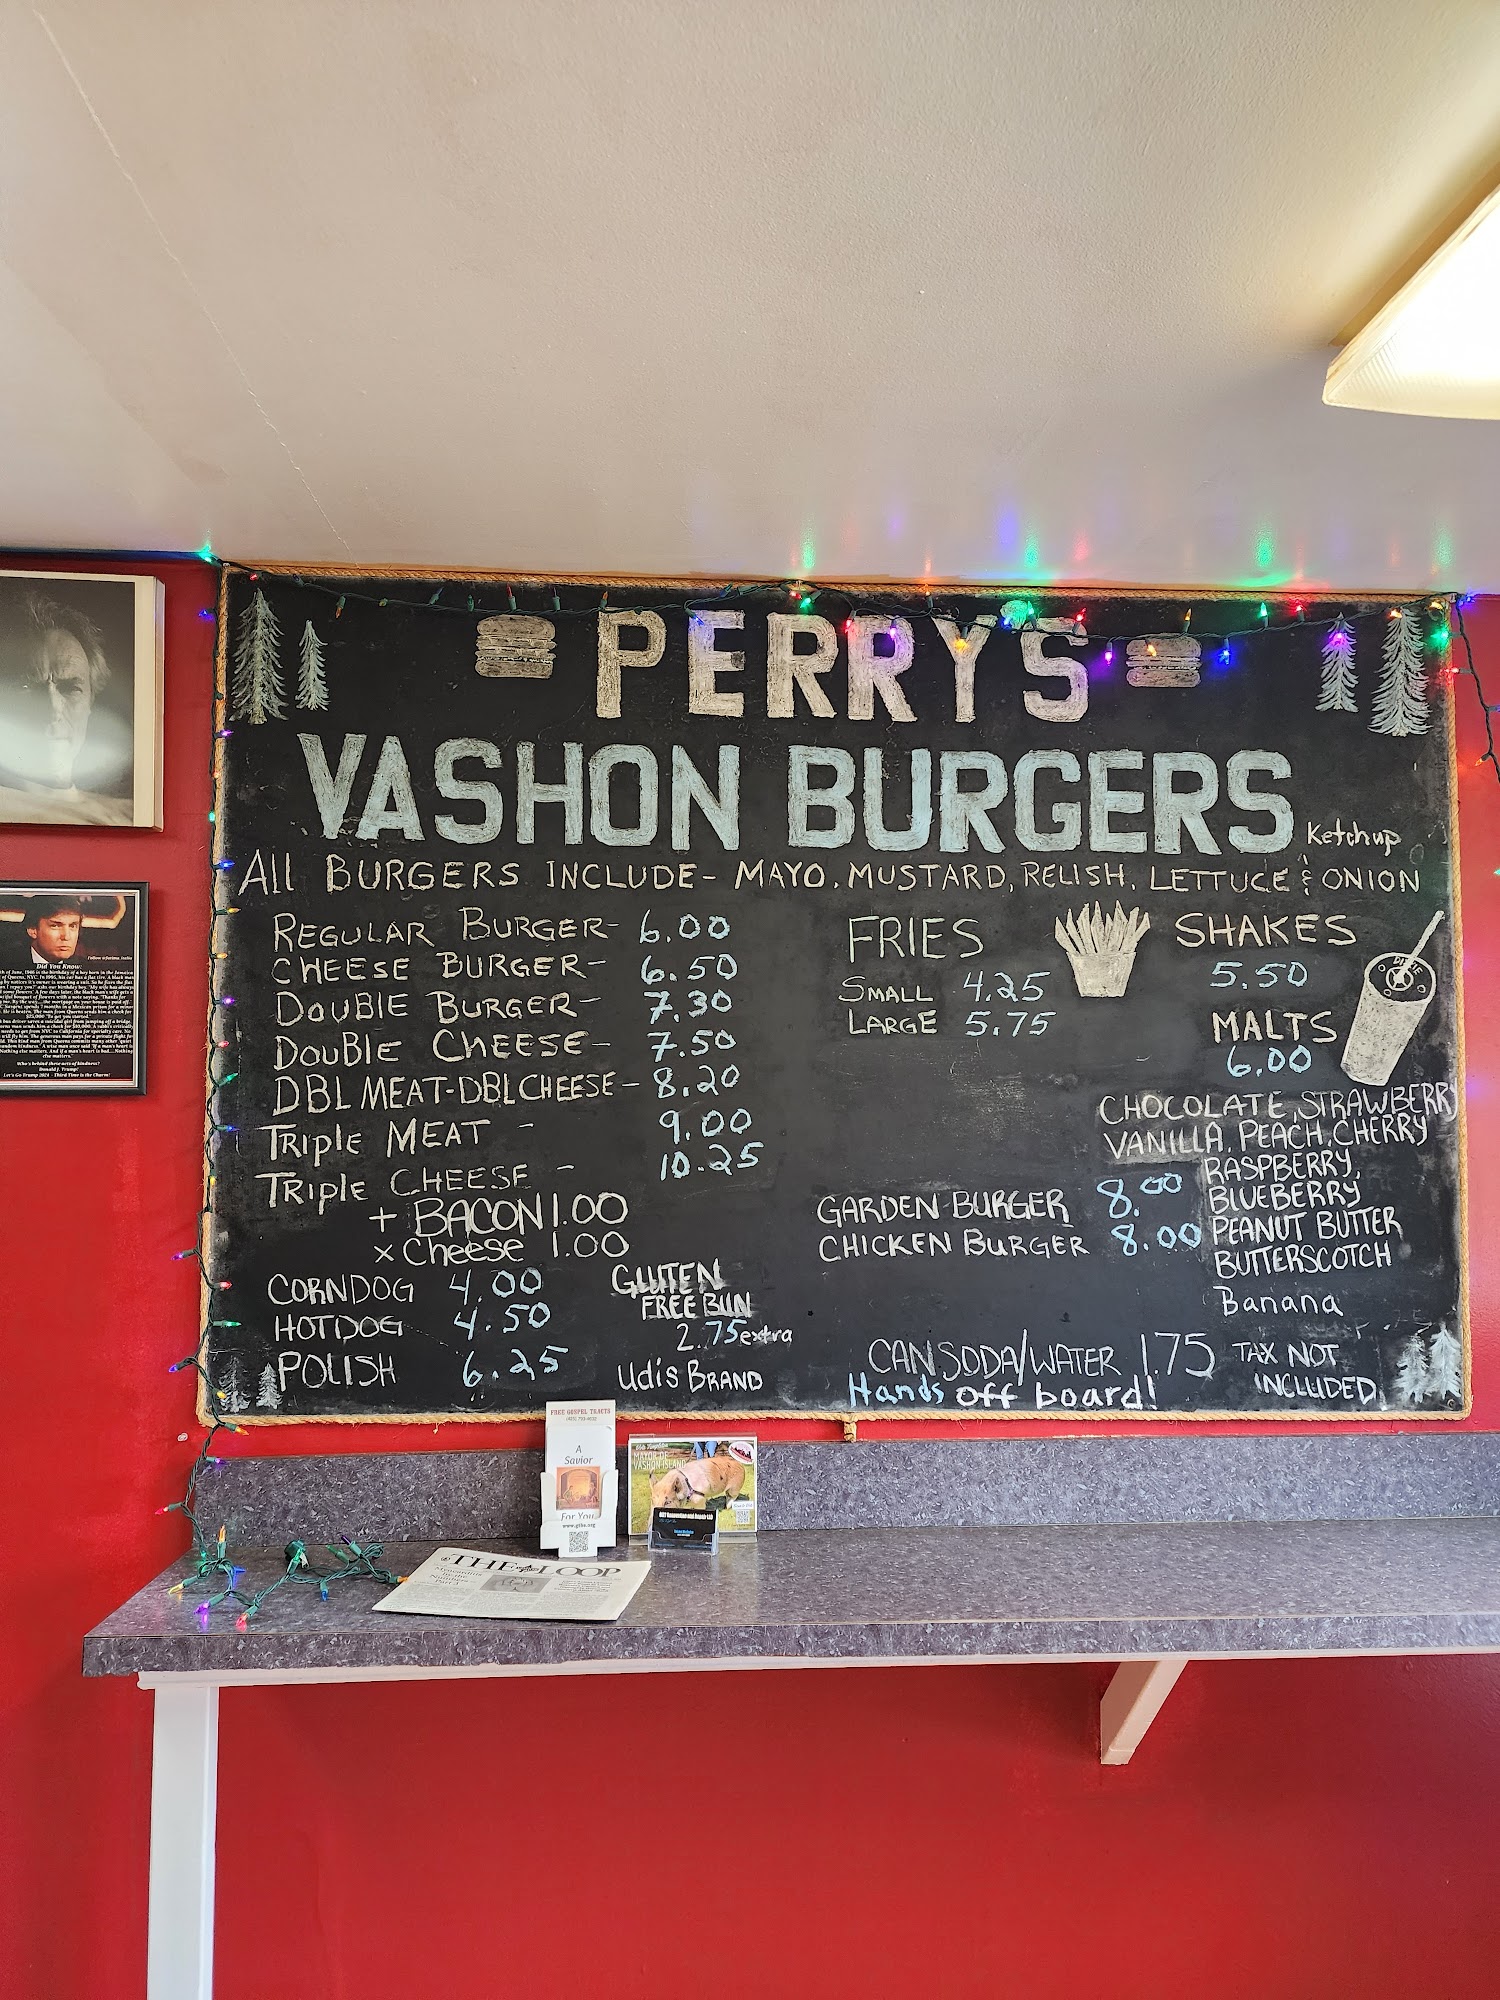 PERRY'S
VASHON BURGERS
Ketchup
All BURGERS INCLUDE - MAYO, MUSTARD, RELISH, LETTUCE & ONION
REGULAR BURGER - 6.00
CHEESE BURGER - 6.50
DOUBLE BURGER - 7.30
DOUBLE CHEESE - 7.50
DBL MEAT-DBL CHEESE - 8.20
TRIPLE MEAT - 9.00
TRIPLE CHEESE - 10.25
+ BACON 1.00
x Cheese 1.00
CORNDOG 4.00
HOTDOG 4.50
POLISH 6.25
GLUTEN
FREE BUN
2.75 extra
Udis BRAND
FRIES
SMALL 4.25
LARGE 5.75
GARDEN BURGER 8.00
CHICKEN BURGER 8.00
SHAKES
5.50
MALTS
6.00
DIXIE
CHOCOLATE, STRAWBERRY
VANILLA, PEACH, CHERRY
RASPBERRY,
BLUEBERRY
PEANUT BUTTER
BUTTERSCOTCH
Banana
CAN SODA/WATER 1.75
Hands off board!
TAX NOT
INCLUDED
Did You Know:
Who's behind these acts of kindness?
Donald J. Trump!
Let's Go Trump 2024 - Third Time is the Charm!
FREE GOSPEL TRACTS
A
Savior
For You
MAYOR OF
VASHON ISLAND
THE LOOP